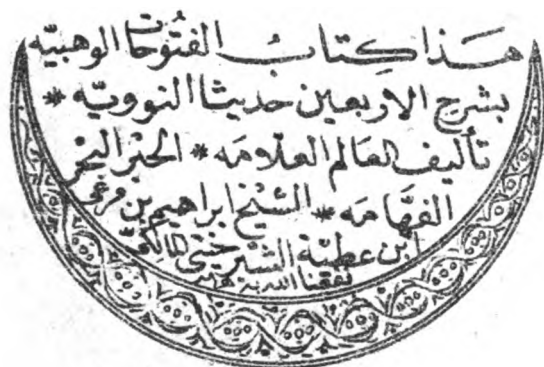 هذا كتاب الفتوحات الوهبيه
بشرح الاربعين حديثا النوويه *
تأليف العالم العلامه * الحبر البحر
الفهامه * الشيخ ابراهيم بن مرعى
ابن عطية الشبرخيتى المالكى
نفعنا الله به